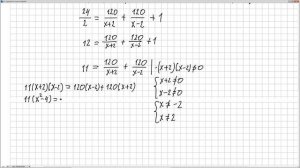 24/2 = 120/(x+2) + 120/(x-2) + 1
12 = 120/(x+2) + 120/(x-2) + 1
11 = 120/(x+2) + 120/(x-2) | ·(x+2)(x-2)≠0
11(x+2)(x-2) = 120(x-2)+120(x+2)
11(x²-4) =
{x+2≠0
x-2≠0
{x≠-2
x≠2